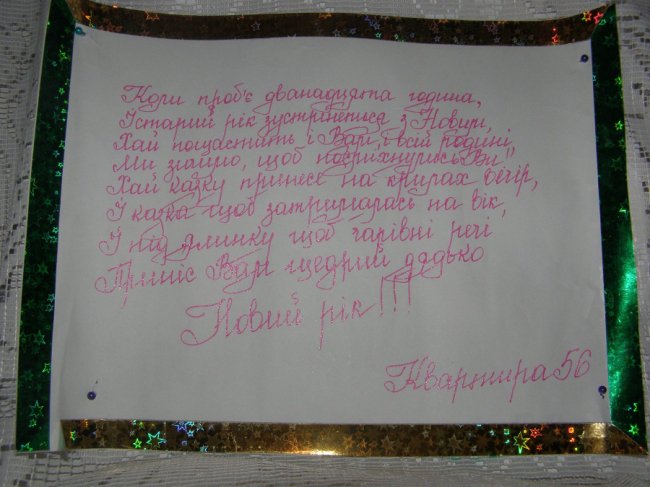 Коли проб'є дванадцята година,
І старий рік зустрінеться з Новим,
Хай пощастить і Вам, і всій родині,
Ми зичимо, щоб посміхнулись Ви
Хай казку принесе на крилах вечір,
Й казка щоб затрималась на вік,
Й під ялинку щоб чарівні речі
Приніс Вам щедрий дядько
Новий рік!!!
Квартира 56